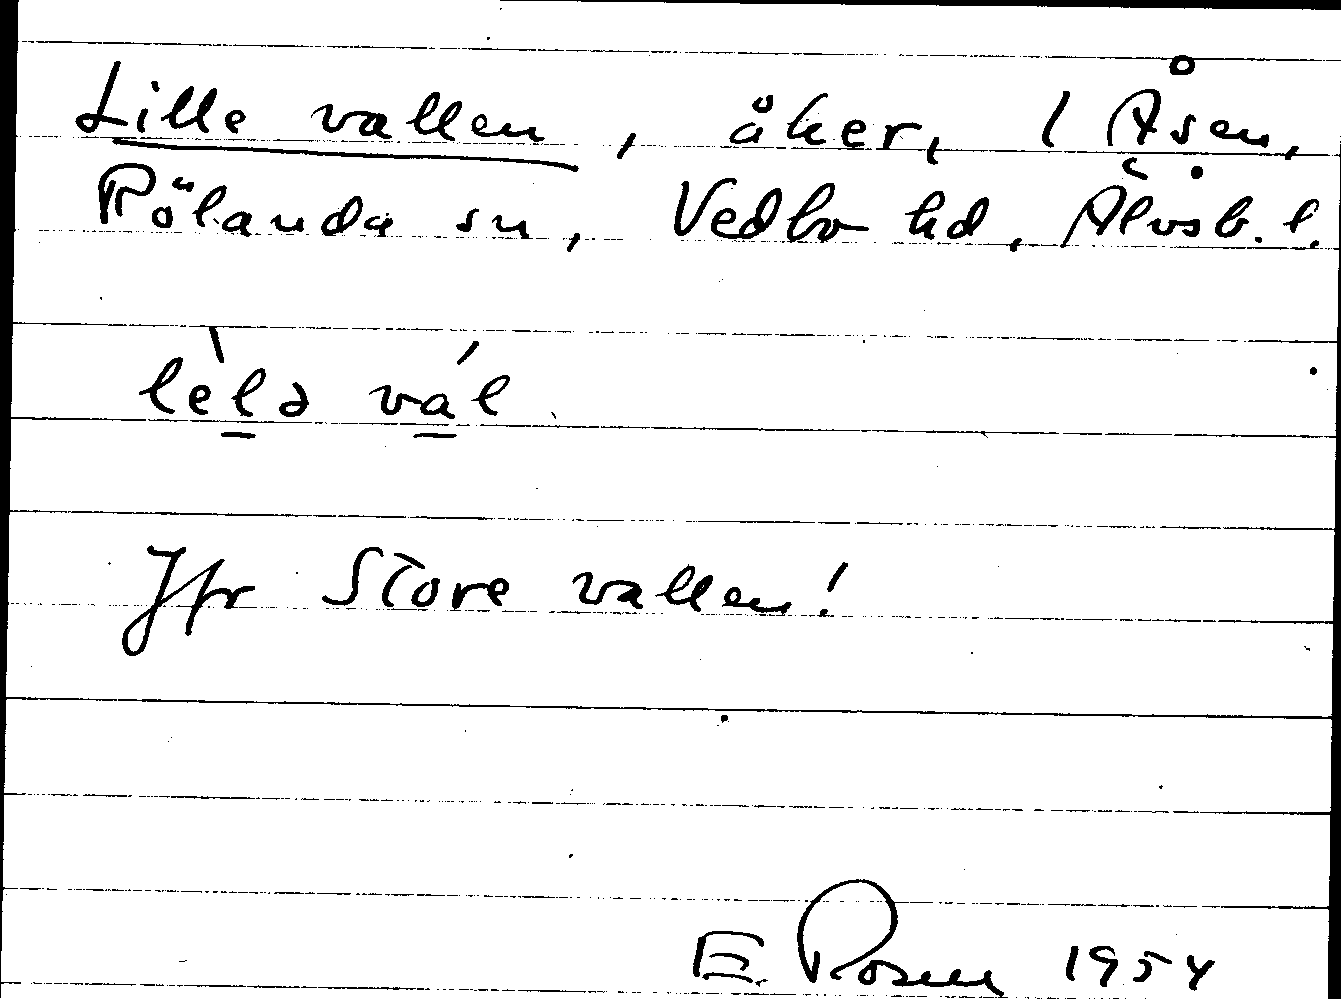 Lille vallen, åker, 1 Åsen,
Rölanda sn, Vedbo hd, Älvsb. l.
lèlə vál
Jfr Store vallen!
E. Rosen 1954